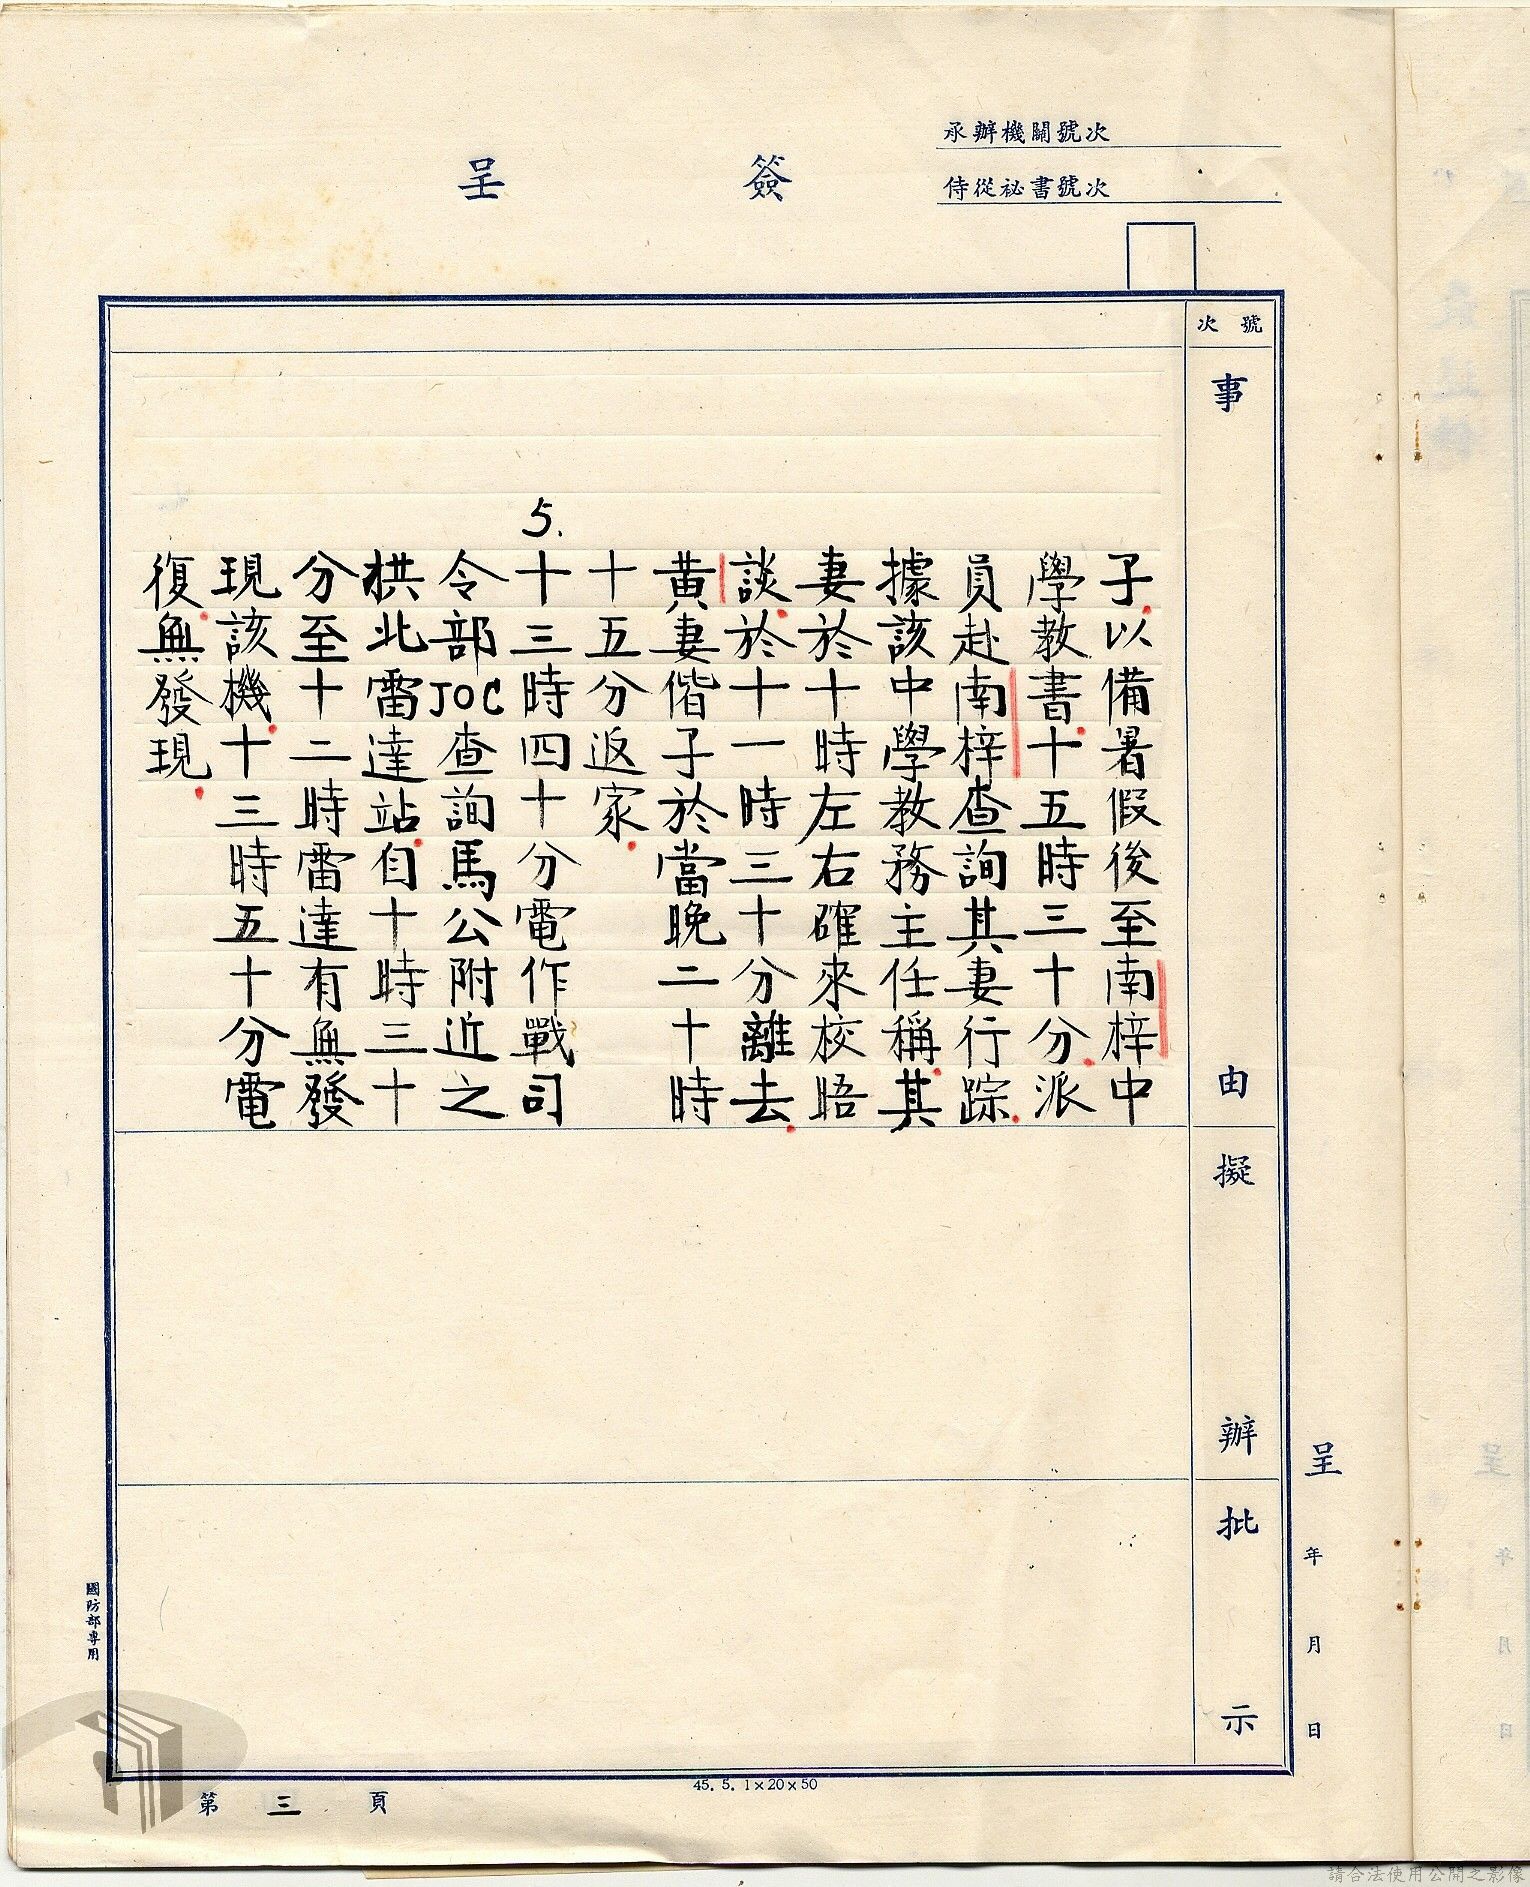 承辦機關號次
侍從祕書號次
簽呈
號次
事由
擬辦
批示
子.以備暑假後至南梓中
學教書.十五時三十分.派
員赴南梓查詢其妻行踪.
據該中學教務主任稱.其
妻於十時左右確來校晤
談.於十一時三十分離去.
黃妻偕子於當晚二十時
十五分返家.
5.十三時四十分電作戰司
令部JOC查詢馬公附近之
栱北雷達站.自十時三十
分至十二時雷達有無發
現該機.十三時五十分電
復.無發現.
呈
年
月
日
國防部專用
第三頁
45. 5. 1×20×50
請合法使用公開之影像